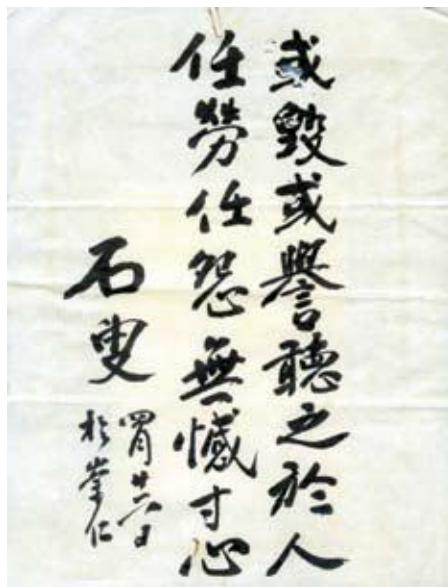 或毀或譽聽之於人
任勞任怨無憾寸心
石叟
四月廿六日
於崇仁